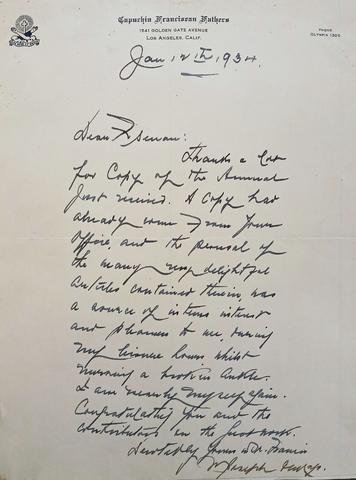 Capuchin Franciscan Fathers
1541 GOLDEN GATE AVENUE
LOS ANGELES, CALIF.
PHONE
OLYMPIA 1305
Jan 12th 1934.
Dear
Thanks a lot
for Copy of the Annual
just received. A Copy had
already come from your
Office, and the perusal of
the many very delightful
Articles contained therein, was
a source of intense interest
and pleasure to me, during
my leisure hours whilst
nursing a broken Ankle.
I am nearly myself again.
Congratulating you and the
contributors on the good work.
Devotedly yours in St. Francis
Joseph